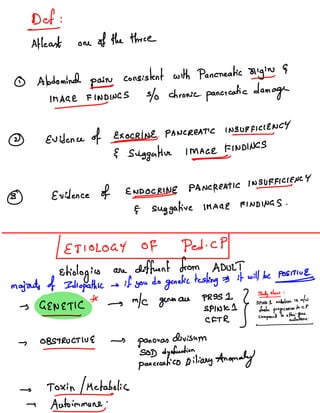 Def:
Atleast one of the three
① Abdominal pain consistent with Pancreatic Origin &
IMAGE FINDINGS s/o chronic pancreatic damage
② Evidence of EXOCRINE PANCREATIC INSUFFICIENCY
& Suggestive IMAGE FINDINGS
③ Evidence of ENDOCRINE PANCREATIC INSUFFICIENCY
& suggestive IMAGE FINDINGS.
ETIOLOGY OF Ped. CP
Etiologies are different from ADULT
majority of Idiopathic → if you do genetic testing → it will be POSITIVE
→ GENETIC * → m/c genes are PRSS1
SPINK1
CFTR
Study shows:
SPINK1 mutation is m/c
faster progression to CP
Compared to other gene
mutations
→ OBSTRUCTIVE → pancreas divisum
SOD dysfunction
pancreatico Biliary Anomaly
→ Toxin / Metabolic
→ Autoimmune.